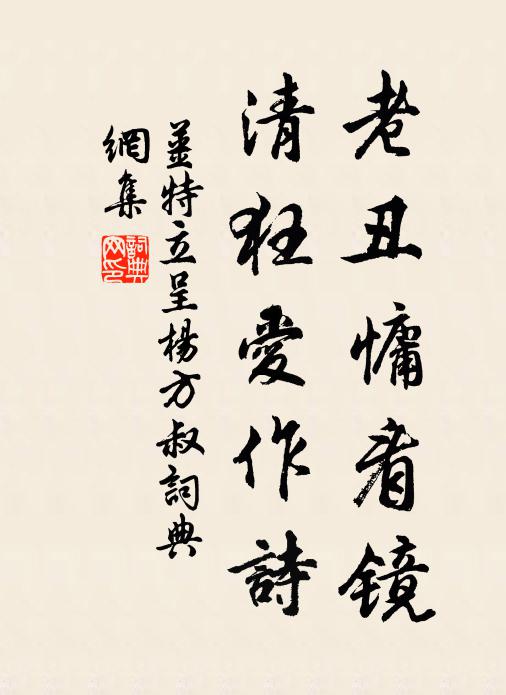 老丑慵看镜
清狂愛作詩
姜特立呈楊方叔詞典
網集
詞典網印